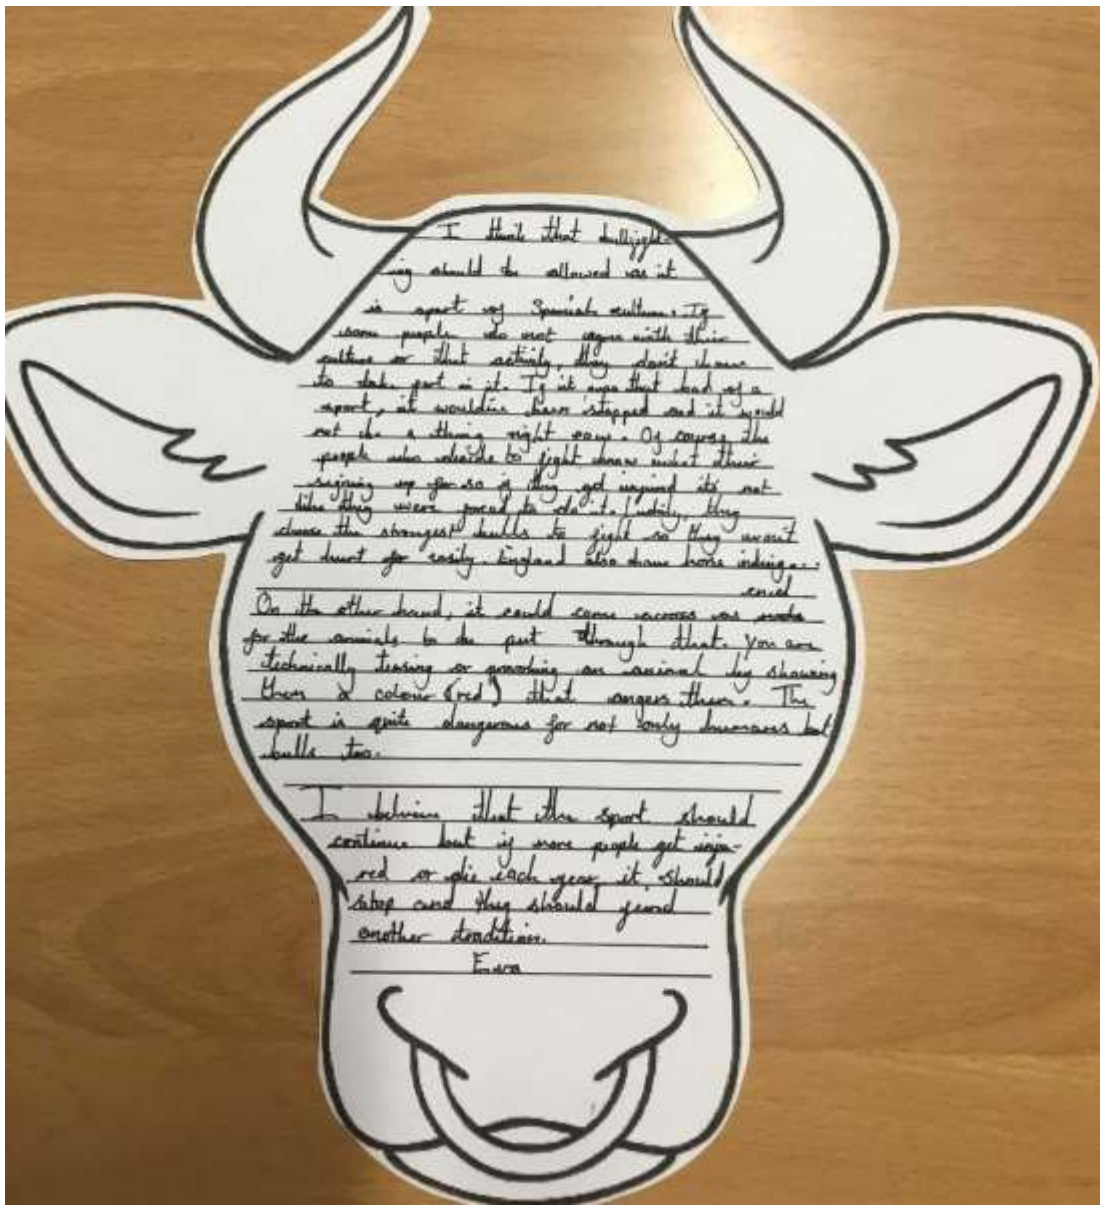 I think that bullfight-
ing should be allowed as it
is apart of Spanish culture. If
some people do not agree with their
culture or that activity, they don't have
to take part in it. If it was that bad of a
sport, it would've been stopped and it would
not be a thing right now. Of course the
people who decide to fight know what their
signing up for so if they get injured it's not
like they were forced to do it. Lastly, they
choose the strongest bulls to fight so they won't
get hurt for easily. England also have horse riding...
cruel
On the other hand, it could come across as
for the animals to be put through that. You are
technically teasing or provoking an animal by showing
them a colour (red) that angers them. The
sport is quite dangerous for not only humans but
bulls too.
I believe that the sport should
continue but if more people get inju-
red or die each year, it should
stop and they should find
another tradition.